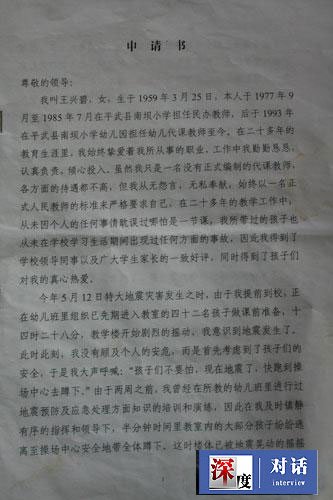 申 请 书
尊敬的领导:
我叫王兴碧,女,生于 1959 年 3 月 25 日,本人于 1977 年 9
月至 1985 年 7 月在平武县南坝小学担任民办教师,后于 1993 年
在平武县南坝小学幼儿园担任幼儿代课教师至今。在二十多年的
教育生涯里,我始终挚爱着我所从事的职业,工作中我勤勤恳恳,
认真负责,倾心投入。虽然我只是一名没有正式编制的代课教师,
各方面的待遇都不高,但我从无怨言,无私奉献,始终以一名正
式人民教师的标准来严格要求自己,在二十多年的教学工作中,
从未因个人的任何事情耽误过哪怕是一节课,我所带过的孩子也
从未在学校学习生活期间出现过任何方面的事故,因此我得到了
学校领导同事以及广大学生家长的一致好评,同时得到了孩子们
对我的真心热爱。
今年 5 月 12 日特大地震灾害发生之时,由于我提前到校,正
在幼儿班里组织已先期进入教室的四十二名孩子做课前准备,十
四时二十八分,教学楼开始剧烈的摇动,我意识到地震发生了。
此时此刻,我没有顾及个人的安危,而是首先考虑到了孩子们的
安全,于是我大声呼喊:“孩子们不要怕,现在地震了,快跑到操
场中心去蹲下。”由于两周之前,我曾经在所教的幼儿班里进行过
地震预防及应急处理方面知识的培训和演练,因此在我及时镇静
有序的指挥和领导下,半分钟时间里教室内的大部分孩子纷纷逃
离至操场中心安全地带全体蹲下。这时楼体已被地震晃动的摇摇
深度 对话
interview